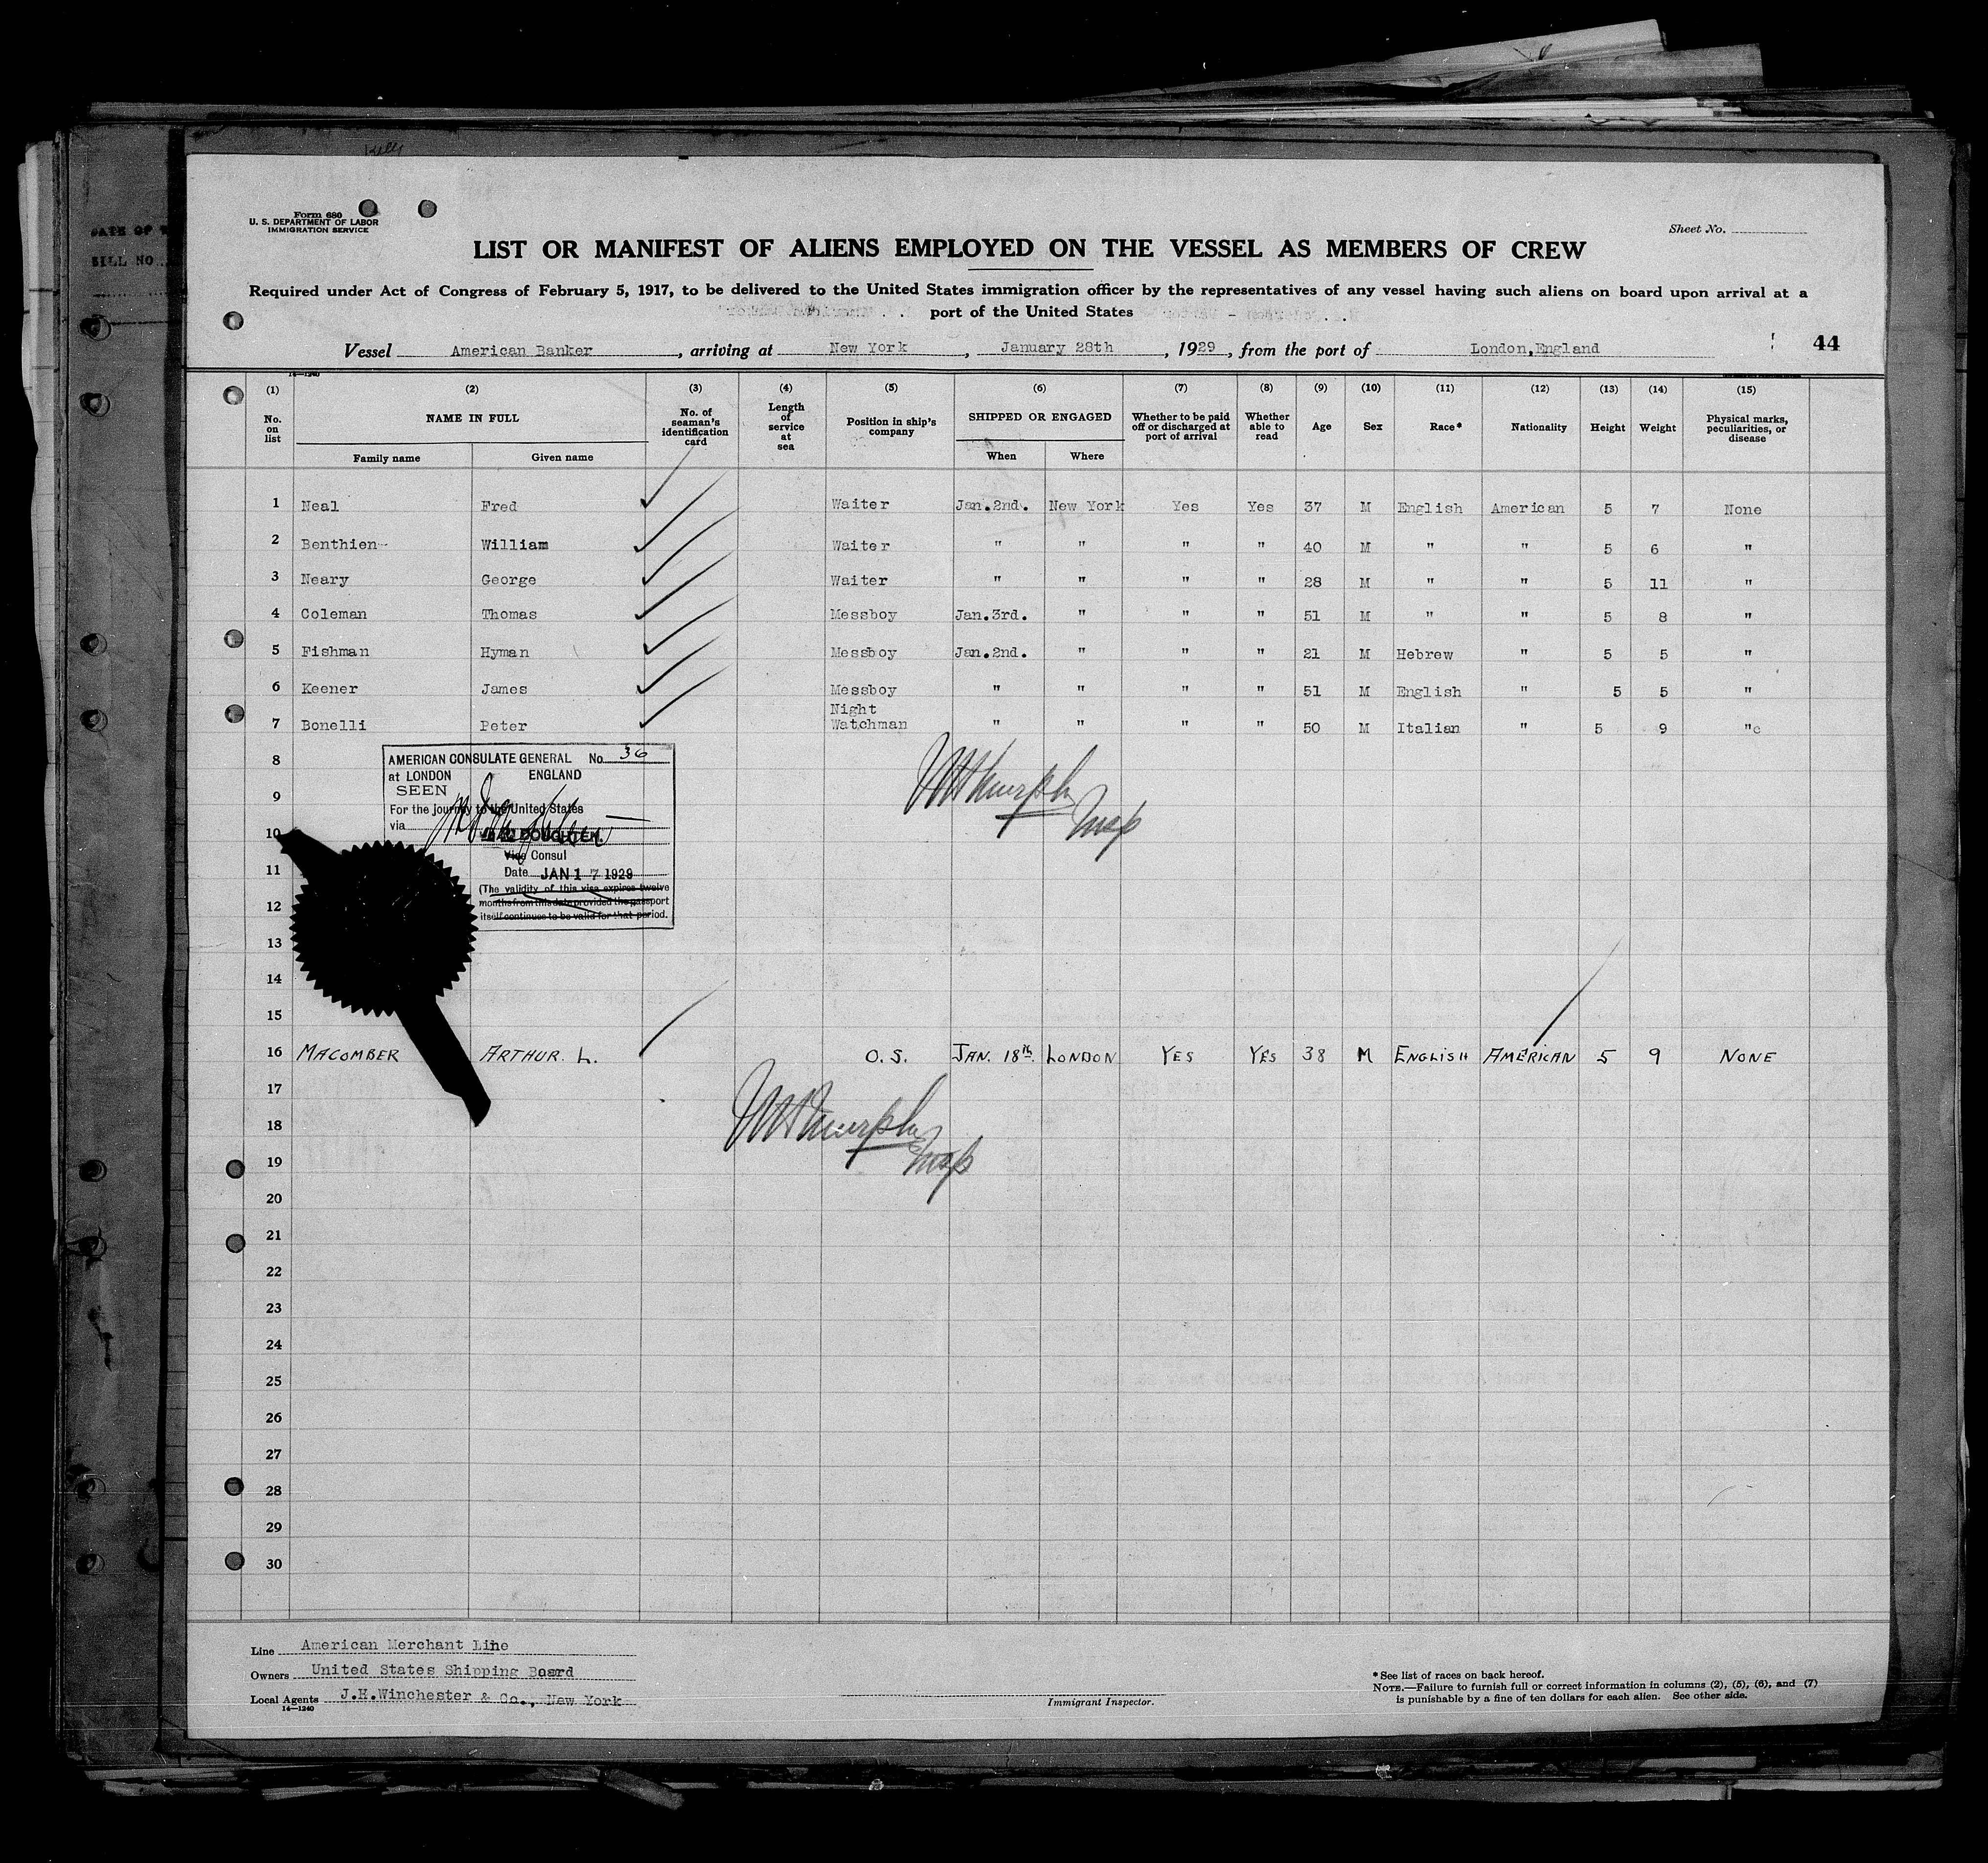 Form 680
U. S. DEPARTMENT OF LABOR
IMMIGRATION SERVICE
Sheet No.
LIST OR MANIFEST OF ALIENS EMPLOYED ON THE VESSEL AS MEMBERS OF CREW
Required under Act of Congress of February 5, 1917, to be delivered to the United States immigration officer by the representatives of any vessel having such aliens on board upon arrival at a
port of the United States
Vessel American Banker, arriving at New York, January 28th, 1929, from the port of London, England
44
14—1240
(1) (2) (3) (4) (5) (6) (7) (8) (9) (10) (11) (12) (13) (14) (15)
No. on list
NAME IN FULL
Family name Given name
No. of seaman's identification card
Length of service at sea
Position in ship's company
SHIPPED OR ENGAGED
When Where
Whether to be paid off or discharged at port of arrival
Whether able to read
Age
Sex
Race*
Nationality
Height
Weight
Physical marks, peculiarities, or disease
1 Neal Fred Waiter Jan.2nd. New York Yes Yes 37 M English American 5 7 None
2 Benthien William Waiter " " " " 40 M " " 5 6 "
3 Neary George Waiter " " " " 28 M " " 5 11 "
4 Coleman Thomas Messboy Jan.3rd. " " " 51 M " " 5 8 "
5 Fishman Hyman Messboy Jan.2nd. " " " 21 M Hebrew " 5 5 "
6 Keener James Messboy " " " " 51 M English " 5 5 "
7 Bonelli Peter Night Watchman " " " " 50 M Italian " 5 9 "
8
AMERICAN CONSULATE GENERAL No. 36
at LONDON ENGLAND
SEEN
9
For the journey to the United States
via
10
DOUGHTEN.
Vice Consul
11
Date JAN 17 1929
(The validity of this visa expires twelve
12
months from this date provided the passport
itself continues to be valid for that period.
13
14
15
16 MACOMBER ARTHUR L. O. S. JAN. 18th. LONDON YES YES 38 M ENGLISH AMERICAN 5 9 NONE
17
18
19
20
21
22
23
24
25
26
27
28
29
30
Line American Merchant Line
Owners United States Shipping Board
Local Agents J.H.Winchester & Co., New York
14—1240
Immigrant Inspector.
*See list of races on back hereof.
NOTE.—Failure to furnish full or correct information in columns (2), (5), (6), and (7)
is punishable by a fine of ten dollars for each alien. See other side.